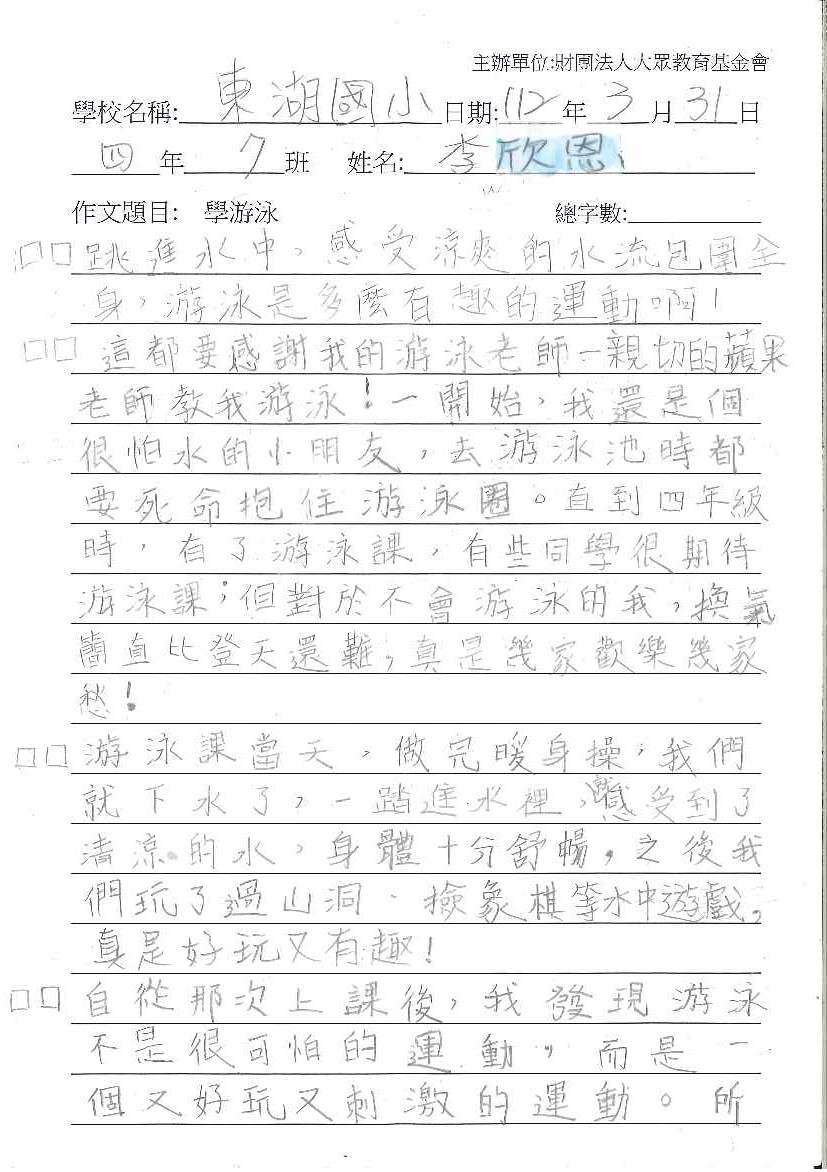 主辦單位:財團法人大眾教育基金會
學校名稱:東湖國小日期:112年3月31日
四年7班 姓名:李欣恩
作文題目: 學游泳 總字數:
□□跳進水中,感受涼爽的水流包圍全
身,游泳是多麼有趣的運動啊!
□□這都要感謝我的游泳老師—親切的蘋果
老師教我游泳!一開始,我還是個
很怕水的小朋友,去游泳池時都
要死命抱住游泳圈。直到四年級
時,有了游泳課,有些同學很期待
游泳課;但對於不會游泳的我,換氣
簡直比登天還難,真是幾家歡樂幾家
愁!
□□游泳課當天,做完暖身操,我們
就下水了,一踏進水裡,就感受到了
清涼的水,身體十分舒暢,之後我
們玩了過山洞、撿象棋等水中遊戲,
真是好玩又有趣!
□□自從那次上課後,我發現游泳
不是很可怕的運動,而是一
個又好玩又刺激的運動。所